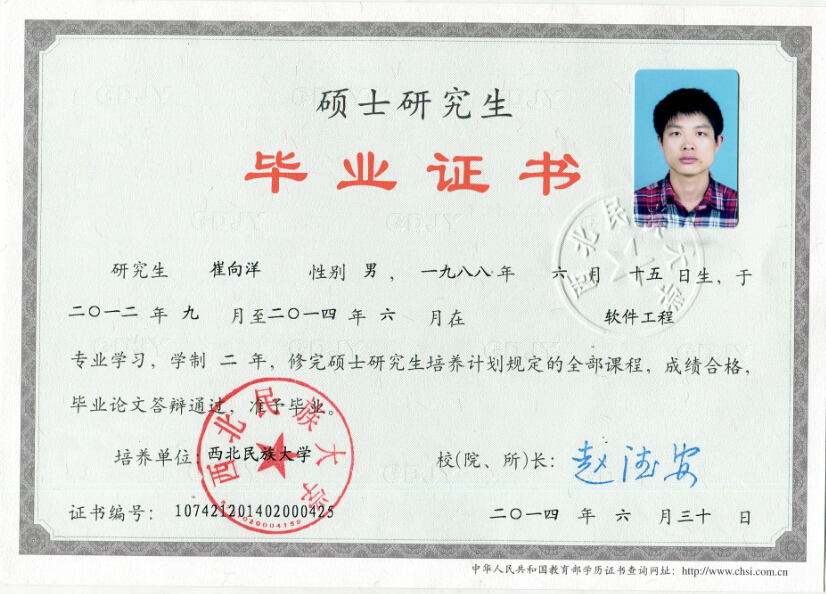 硕士研究生
毕业证书
研究生 崔向洋 性别 男 ， 一九八八年 六 月 十五 日生，于
二〇一二 年 九 月至二〇一四 年 六 月在 软件工程
专业学习，学制 二 年，修完硕士研究生培养计划规定的全部课程，成绩合格，
毕业论文答辩通过，准予毕业。
培养单位：西北民族大学 校(院、所)长： 赵德安
证书编号： 107421201402000425 二〇一四 年 六 月三十 日
西北民族大学
西北民族大学
中华人民共和国教育部学历证书查询网址：http://www.chsi.com.cn